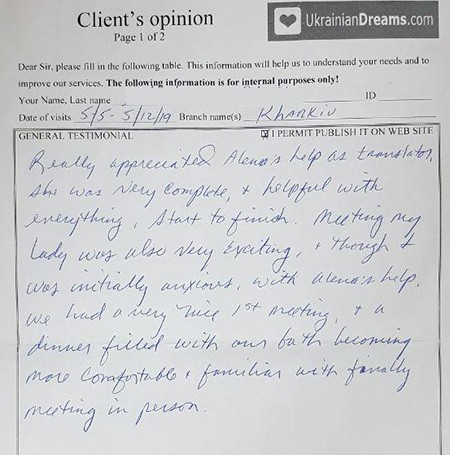 Client's opinion
Page 1 of 2
UkrainianDreams.com
Dear Sir, please fill in the following table. This information will help us to understand your needs and to
improve our services. The following information is for internal purposes only!
Your Name, Last name ID
Date of visits 5/5 - 5/12/19 Branch name(s) Kharkiv
GENERAL TESTIMONIAL I PERMIT PUBLISH IT ON WEB SITE
Really appreciated Alena's help as translator,
she was very complete, + helpful with
everything, start to finish. Meeting my
Lady was also very exciting, + though I
was initially anxious, with Alena's help,
we had a very nice 1st meeting, + a
dinner filled with our both becoming
more comfortable + familiar with finally
meeting in person.